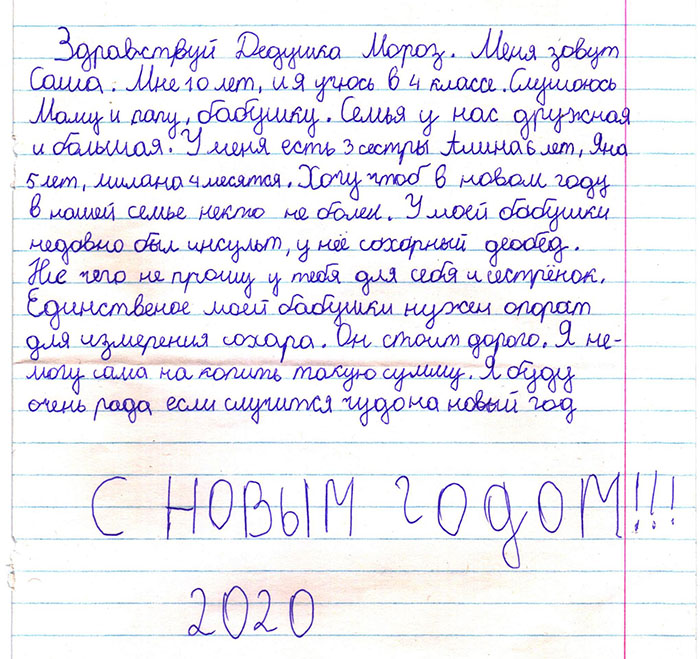 Здравствуй Дедушка Мороз. Меня зовут
Саша. Мне 10 лет, и я учюсь в 4 классе. Слушоюсь
Маму и папу, бабушку. Семья у нас дружная
и большая. У меня есть 3 сестры Алина 6 лет, Яна
5 лет, милана 4 месятся. Хочу чтоб в новом году
в нашей семье некто не болел. У моей бабушки
недавно был инсульт, у неё сохорный деобед.
Не чего не прошу у тебя для себя и сестрёнок.
Единственое моей бабушки нужен опорат
для измерения сохара. Он стоит дорого. Я не-
могу сама на копить такую сумму. Я буду
очень рада если случится чудо на новый год
С НОВЫМ ГОДОМ!!!
2020